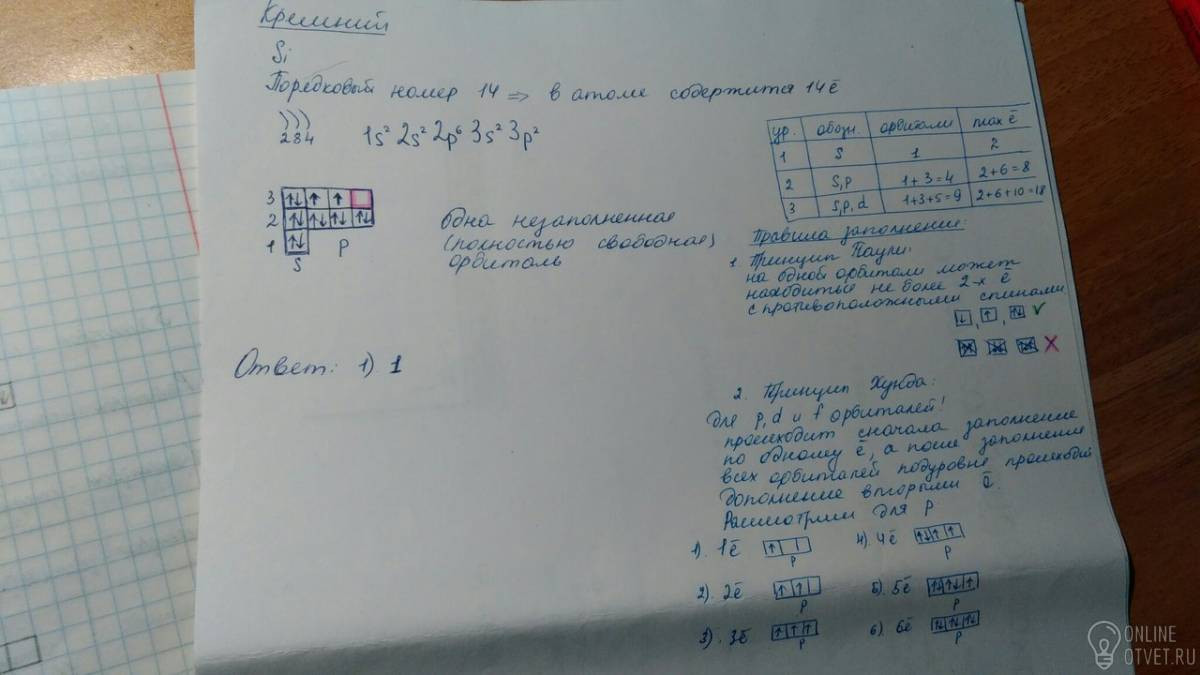 Кремний
Si
Порядковый номер 14 => в атоме содержится 14ē
)))
2 8 4 1s² 2s² 2p⁶ 3s² 3p²
ур. обозн. орбитали max ē
1 s 1 2
2 s,p 1+3=4 2+6=8
3 s,p,d 1+3+5=9 2+6+10=18
3 ↑↓ ↑ ↑
2 ↑↓ ↑↓ ↑↓ ↑↓
1 ↑↓ p
s
одна незаполненная
(полностью свободная)
орбиталь
Ответ: 1) 1
Правила заполнения:
1. Принцип Паули:
на одной орбитали может
находиться не более 2-х ē
с противоположными спинами.
↓, ↑, ↑↓ ✓
X
2. Принцип Хунда:
для p, d и f орбиталей!
происходит сначала заполнение
по одному ē, а после заполнения
всех орбиталей подуровня происходит
дополнение вторыми ē.
Рассмотрим для p
1). 1ē ↑ p
2). 2ē ↑ ↑ p
3). 3ē ↑ ↑ ↑ p
4). 4ē ↑↓ ↑ ↑ p
5). 5ē ↑↓ ↑↓ ↑ p
6). 6ē ↑↓ ↑↓ ↑↓ p
ONLINE
OTVET.RU